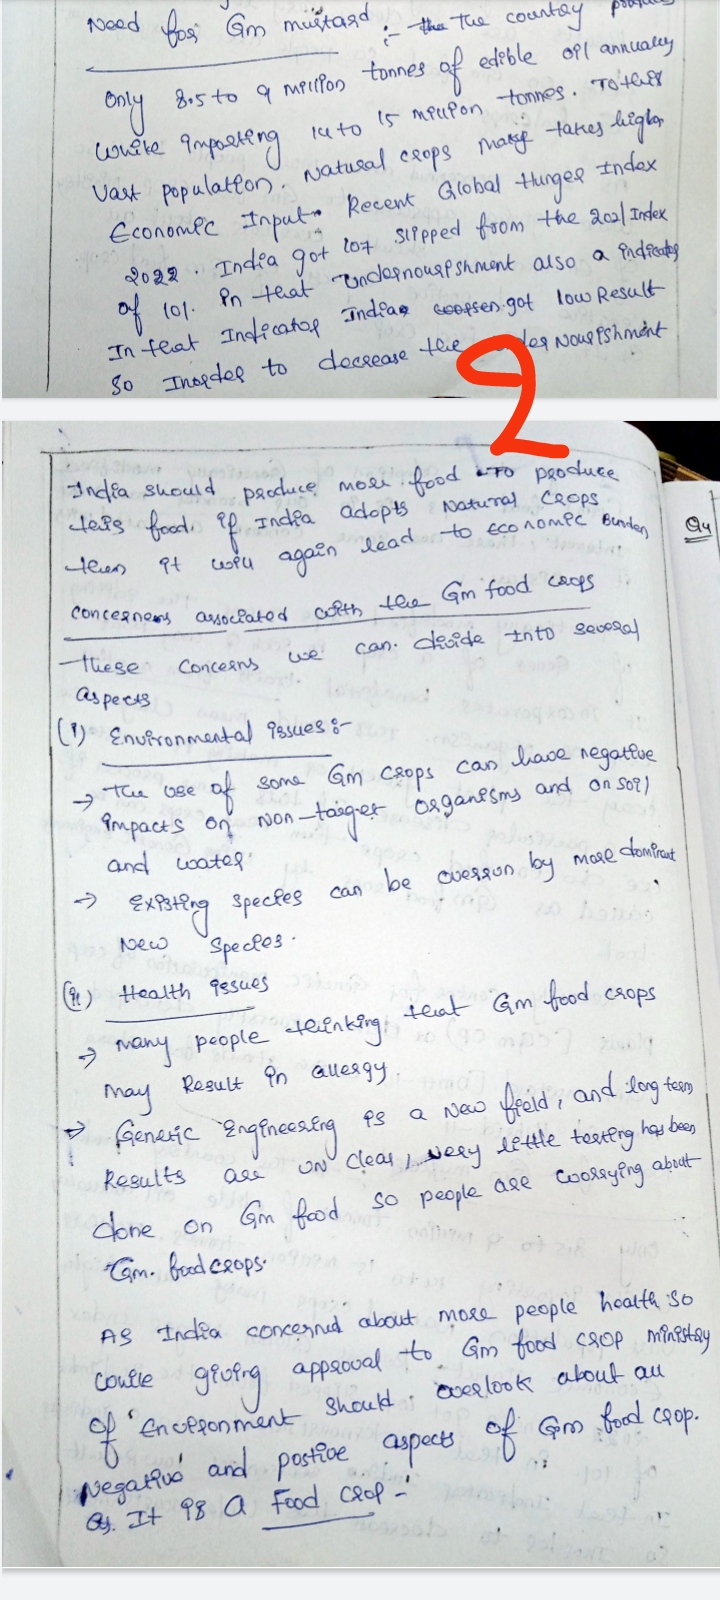 Need for Gm mustard :- the The country
Only 8.5 to 9 million tonnes of edible oil annually
while importing 14 to 15 million tonnes. To this
vast population. Natural crops takes higher
Economic Input. Recent Global Hunger Index
2022. India got 107 slipped from the 2021 Index
of 101. in that undernourishment also a indicator
In that Indicator India got low Result
So Inorder to decrease the Nourishment
2
India should produce more food To produce
this food. if India adopts Natural crops
then it will again lead to economic Burden
Q4
concerners associated with the Gm food crops
These concerns we can. divide into several
aspects
(i) Environmental issues :-
→ The use of some Gm crops can have negative
impacts on non-target organisms and on soil
and water.
→ Existing species can be overrun by more dominant
New species.
(ii) Health issues
→ many people thinking that Gm food crops
may Result in allergy.
→ Genetic Engineering is a new field, and long term
Results are un clear, very little testing has been
done on Gm food so people are worrying about
Gm. food crops.
As India concerned about more people health. so
while giving approval to Gm food crop ministry
of Environment should. overlook about all
Negative and postive aspects of Gm food crop.
as. It is a Food crop -